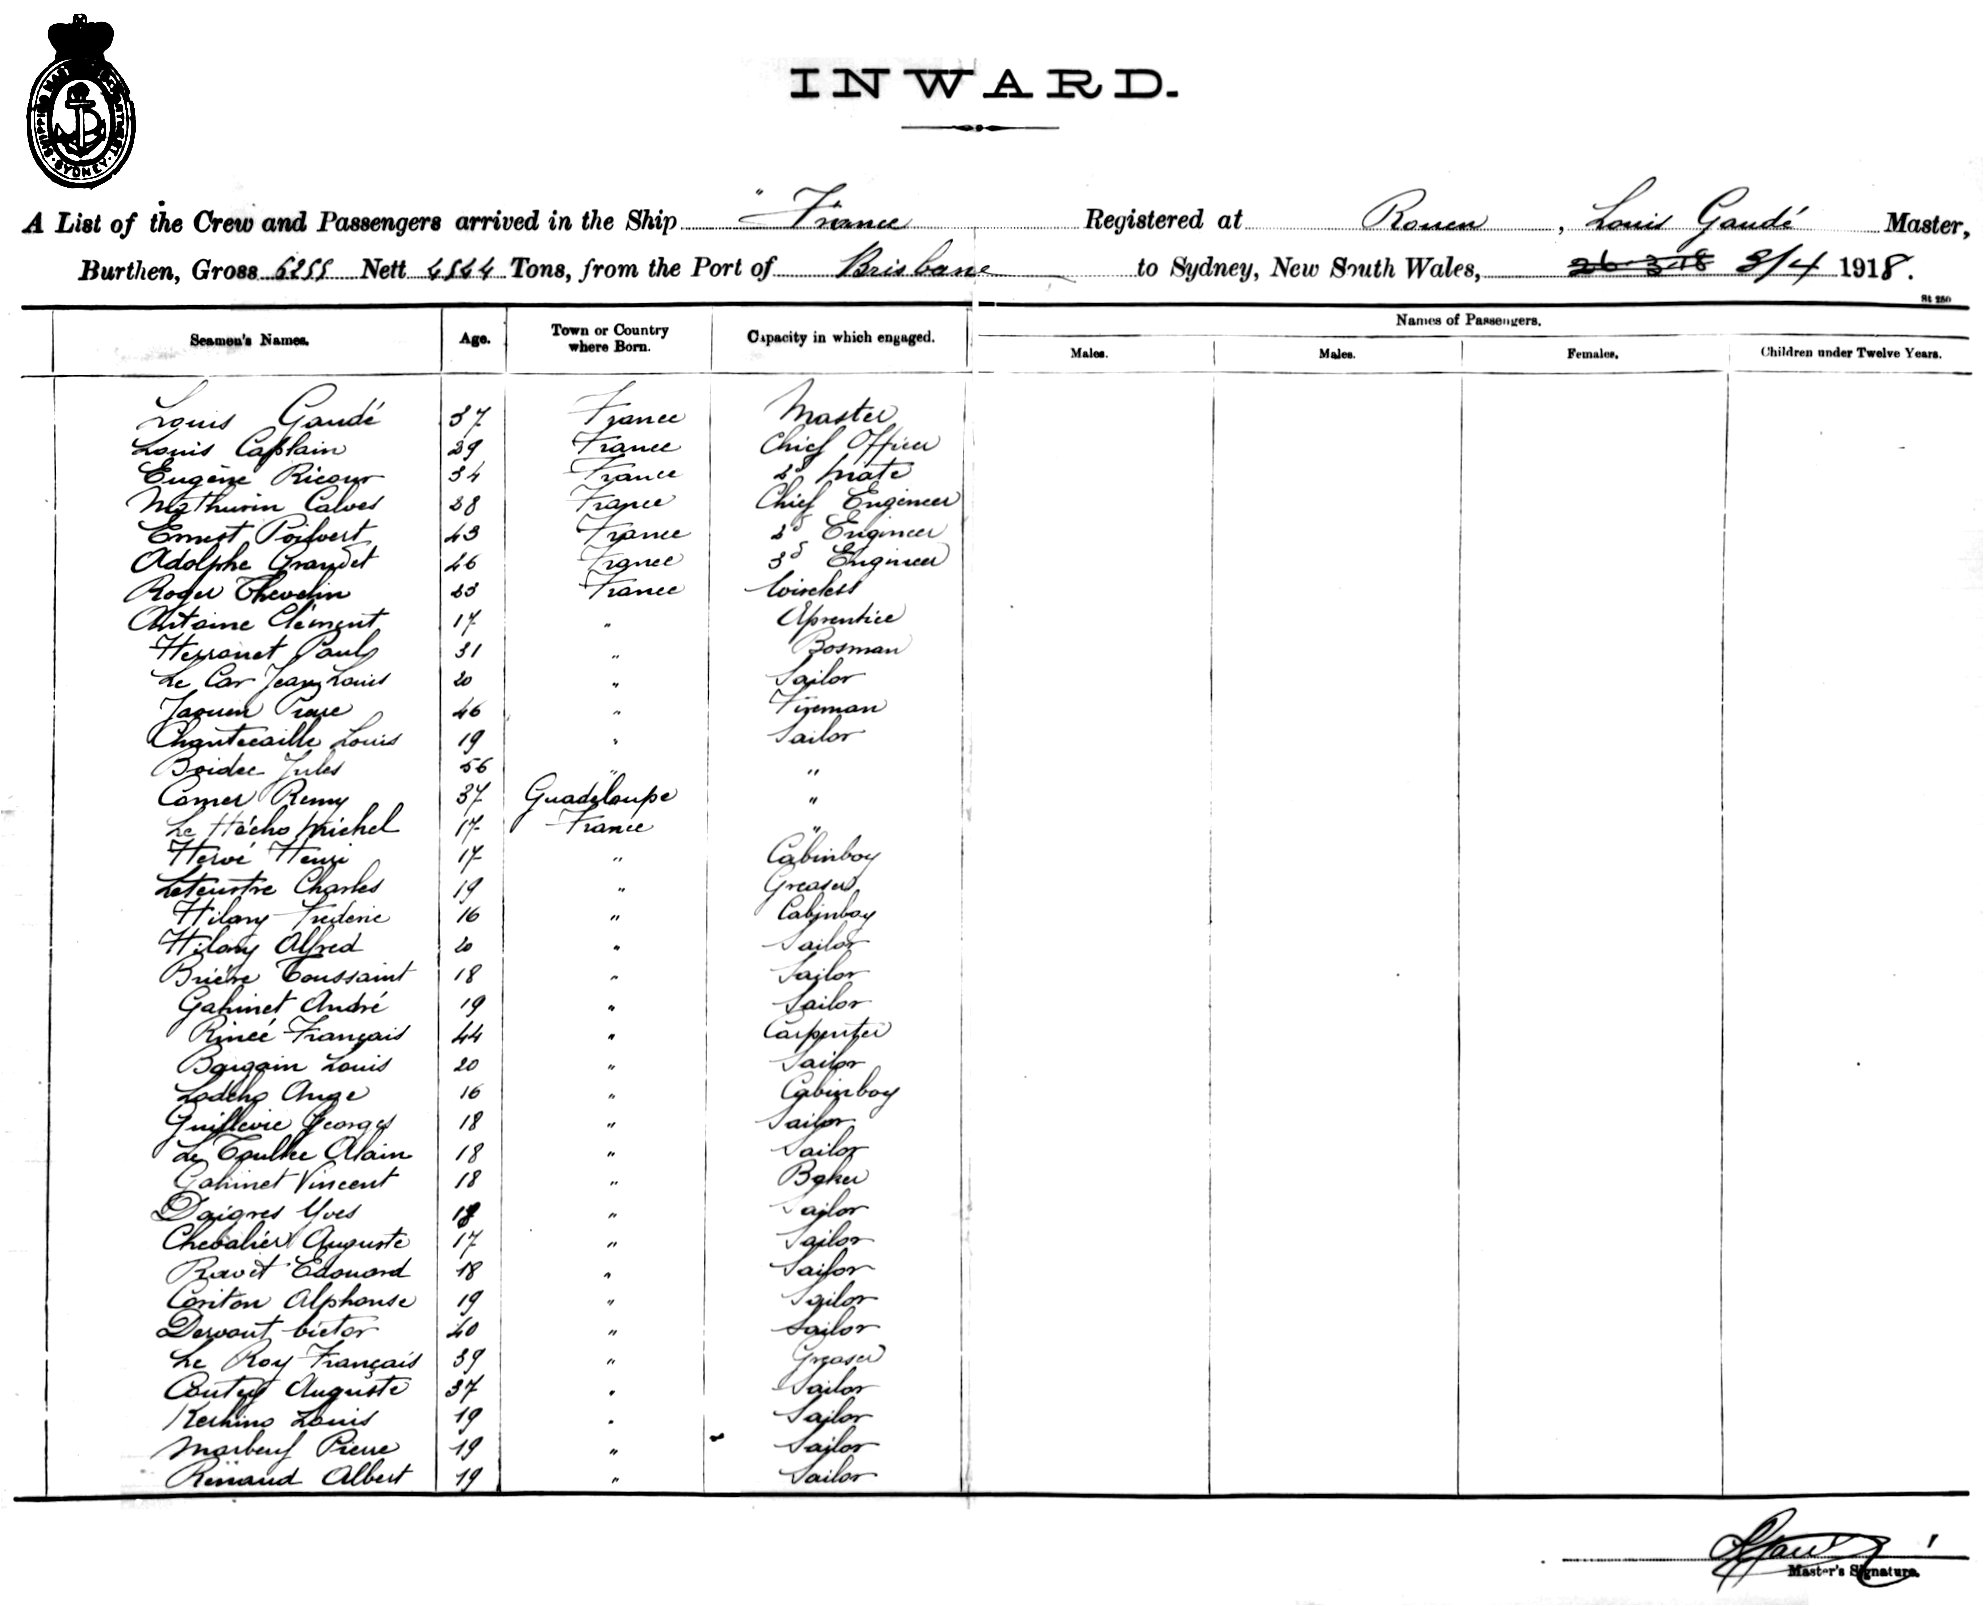 SHIPPING MASTER'S DEPARTMENT. SYDNEY.
INWARD.
A List of the Crew and Passengers arrived in the Ship "France Registered at Rouen, Louis Gaudé Master,
Burthen, Gross 6255 Nett 4544 Tons, from the Port of Brisbane to Sydney, New South Wales, 26-3-18 3/4 1918.
St 250
Seamen's Names. Age. Town or Country where Born. Capacity in which engaged. Names of Passengers.
Males. Males. Females. Children under Twelve Years.
Louis Gaudé 37 France Master
Louis Caplain 29 France Chief Officer
Eugène Ricour 34 France 2d Mate
Mathurin Calves 38 France Chief Engineer
Ernest Poilvert 43 France 2d Engineer
Adolphe Grandet 26 France 3d Engineer
Roger Thevelin 23 France Wireless
Antoine Clément 17 " Aprentice
Herronet Paul 31 " Bosman
Le Car Jean Louis 20 " Sailor
Jaouen 46 " Fireman
Chantecaille Louis 19 " Sailor
Boidec Jules 56 " "
Comer Remy 37 Guadeloupe "
Le Hécho Michel 17 France "
Hervé Henri 17 " Cabinboy
Leteurtre Charles 19 " Greaser
Hilary Frederic 16 " Cabinboy
Hilary Alfred 20 " Sailor
Brière Toussaint 18 " Sailor
Gahinet André 19 " Sailor
Rincé Français 44 " Carpenter
Bargain Louis 20 " Sailor
Lodého Ange 16 " Cabinboy
Guillevic Georges 18 " Sailor
Le Toullec Alain 18 " Sailor
Gahinet Vincent 18 " Baker
Daigres Yves 18 " Sailor
Chevalier Auguste 17 " Sailor
Ravet Edouard 18 " Sailor
Coriton Alphonse 19 " Sailor
Dervout Victor 40 " Sailor
Le Roy Français 39 " Greaser
Auguste 37 " Sailor
Kerhino Louis 19 " Sailor
Marbeuf Pierre 19 " Sailor
Renaud Albert 19 " Sailor
Master's Signature.